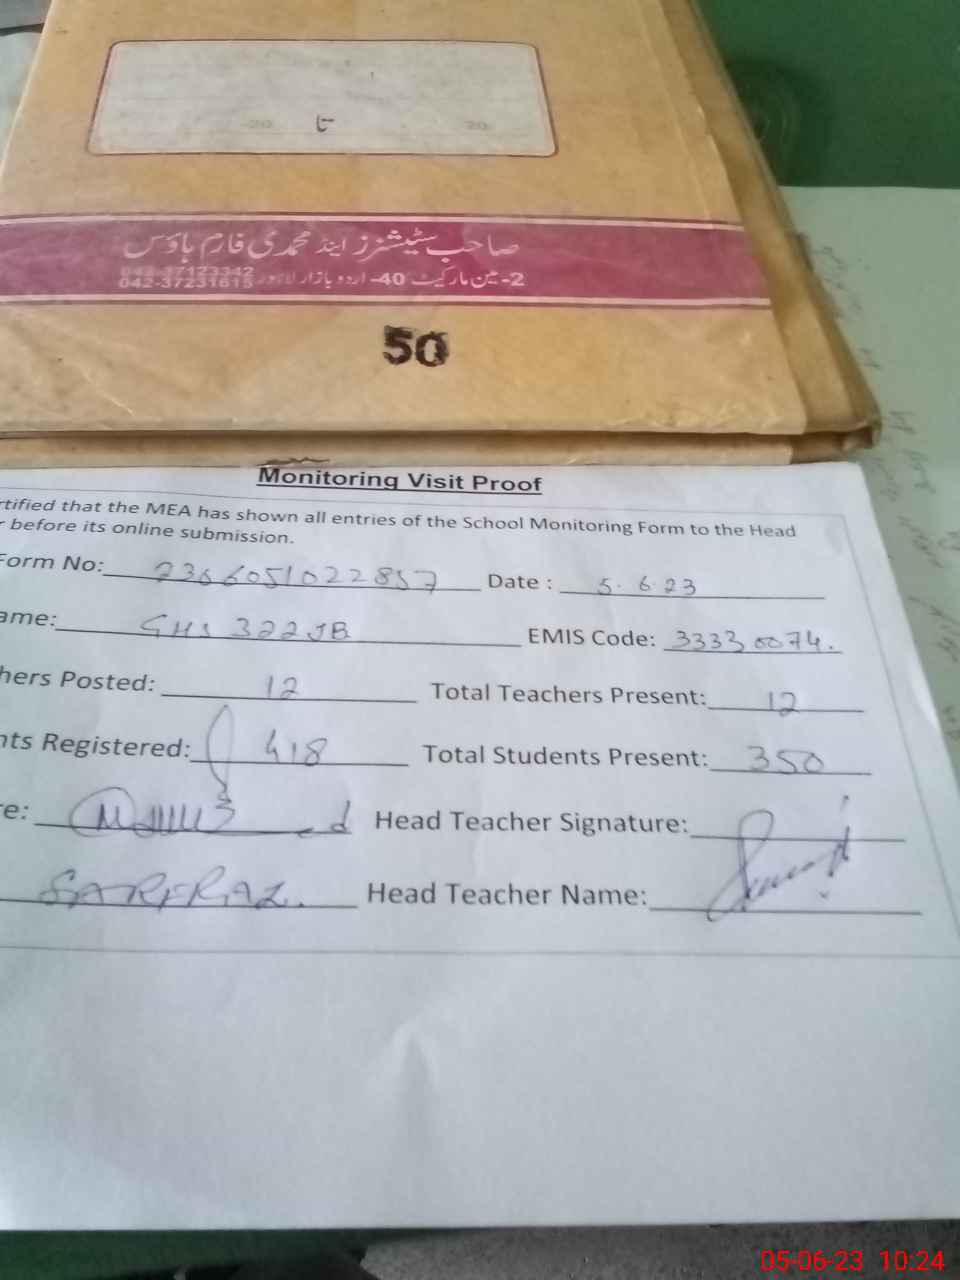 -20 تا 20-
صاحب سٹیشنرز اینڈ محمدی فارم ہاؤس
2-مین مارکیٹ 40-اردو بازار لاہور 042-37123342 042-37231615
50
Monitoring Visit Proof
rtified that the MEA has shown all entries of the School Monitoring Form to the Head
r before its online submission.
Form No: 2366051022857 Date : 5.6.23
ame: GHS 322JB EMIS Code: 33330074.
hers Posted: 12 Total Teachers Present: 12
nts Registered: 418 Total Students Present: 350
re: Head Teacher Signature:
SARFRAZ. Head Teacher Name:
05-06-23 10:24